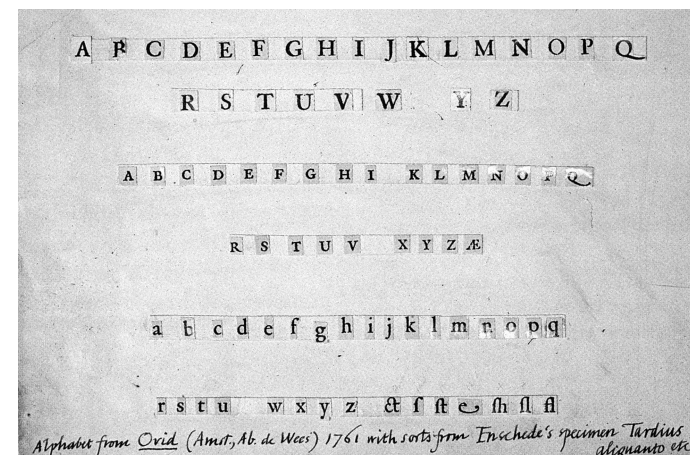 A B C D E F G H I J K L M N O P Q
R S T U V W Y Z
A B C D E F G H I K L M N O P Q
R S T U V X Y Z Æ
a b c d e f g h i j k l m n o p q
r s t u w x y z ct ſ ſt e ſh ſl fl
Alphabet from Ovid (Amst., Ab. de Wees) 1761 with sorts from Enschedé's specimen Tardius
aliquanto etc